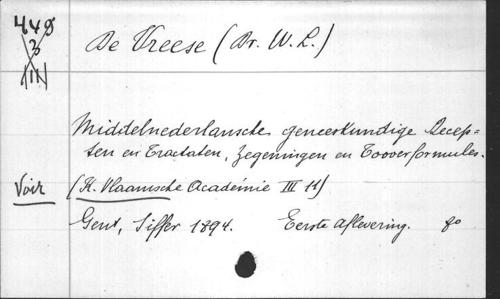 449
3
III
De Vreese (Dr. W. L.)
Middelnederlansche geneeskundige Recep=
ten en Tractaten, Zegeningen en Tooverformules.
Voir (K. Vlaamsche Académie III 11)
Gent, Siffer 1894. Eerste aflevering. 8o